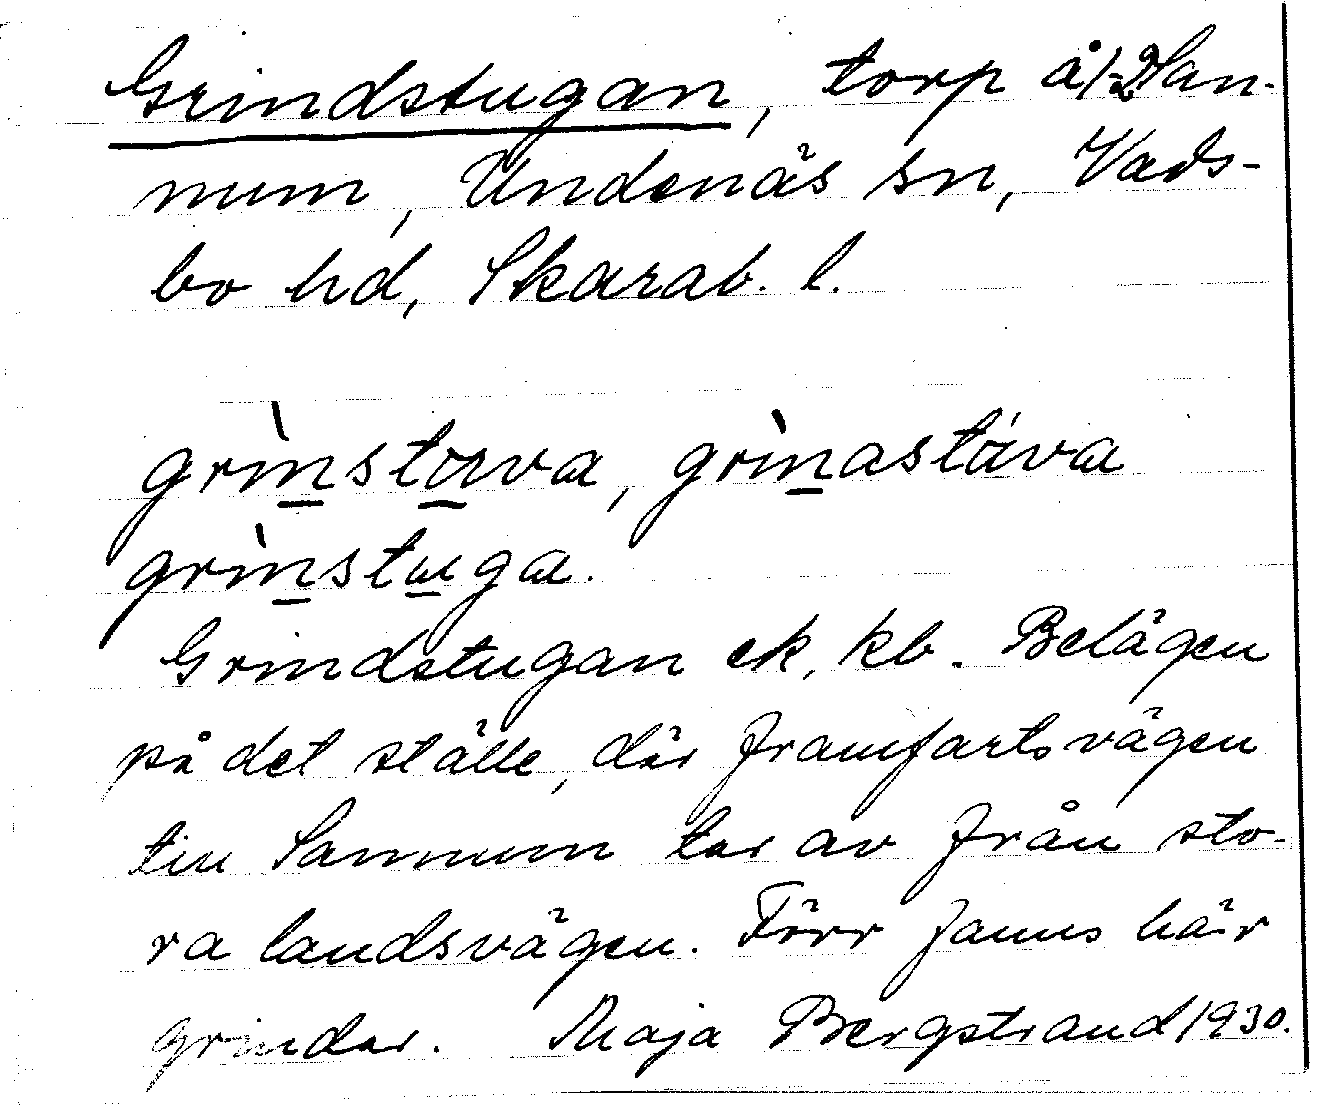 Grindstugan, torp å 1/2 Han-
num, Undenäs sn, Vads-
bo hd, Skarab. l.
grìnstova, grìnastáva
grìnstuga.
Grindstugan ek, kb. Belägen
på det ställe, där framfartsvägen
till Sannum tar av från sto-
ra landsvägen. Förr fanns här
grindar. Maja Bergstrand 1930.